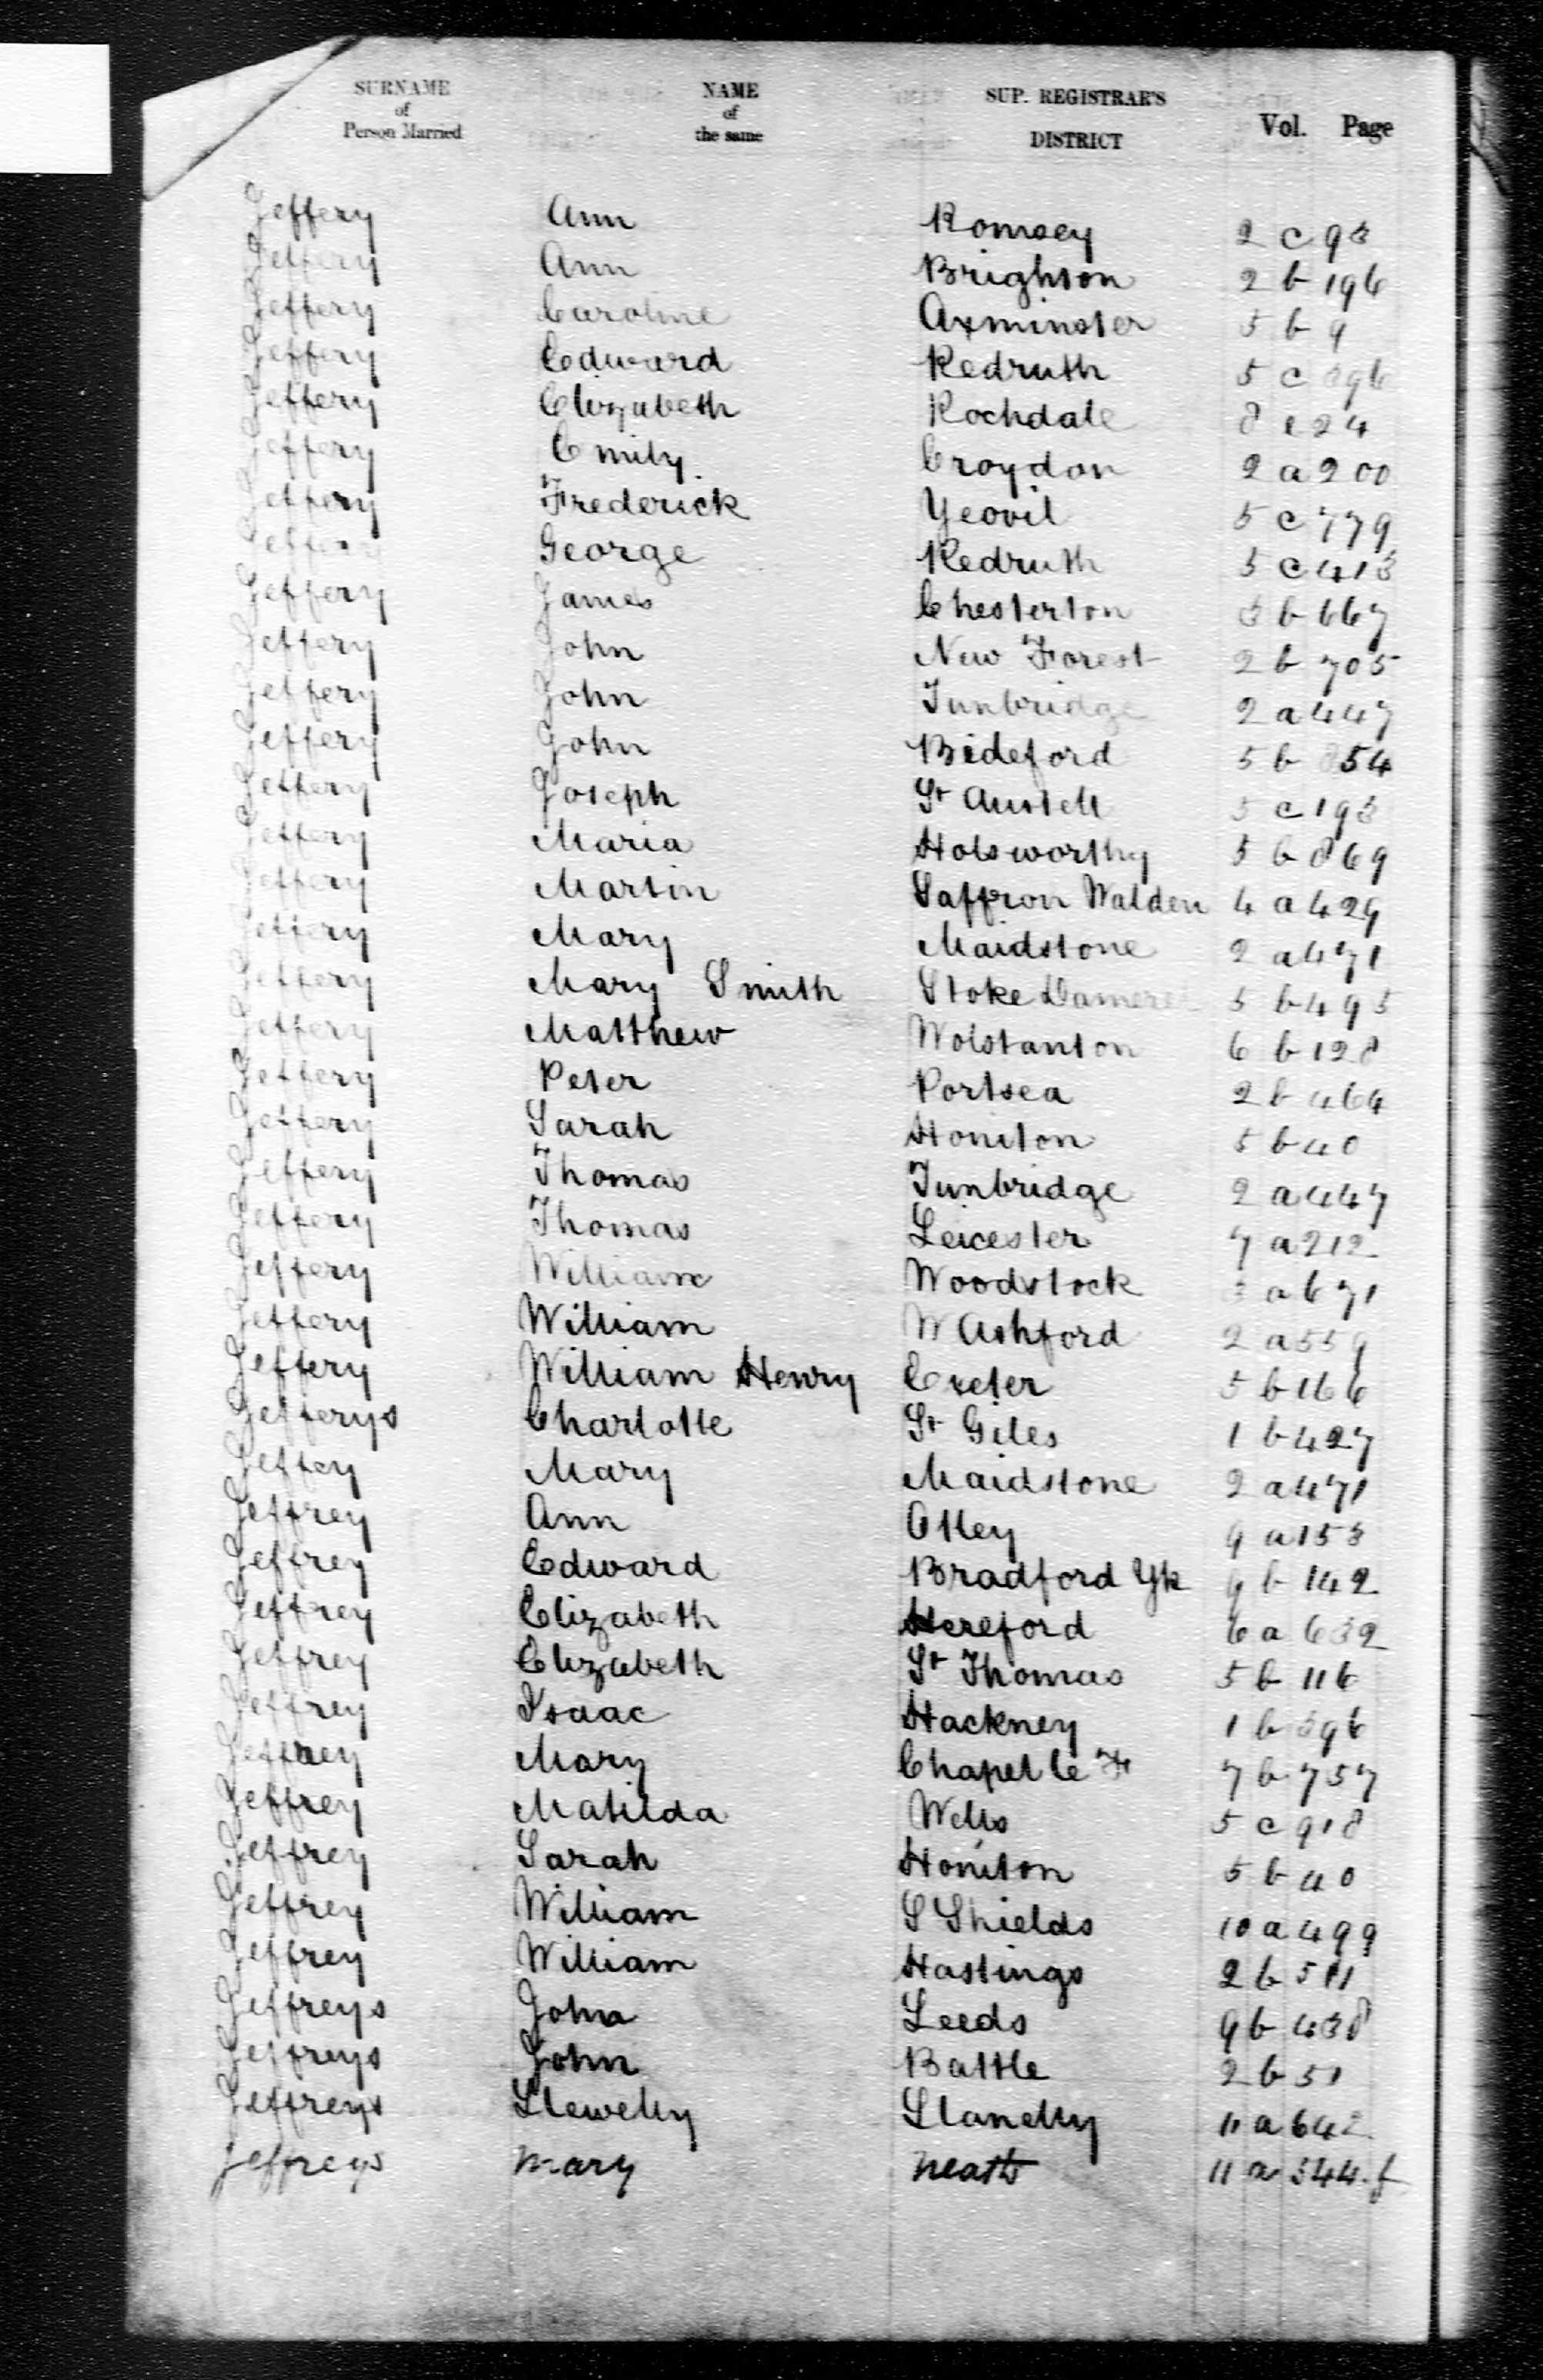 SURNAME of Person Married NAME of the same SUP. REGISTRAR'S DISTRICT Vol. Page
Jeffery Ann Romsey 2 c 93
Jeffery Ann Brighton 2 b 196
Jeffery Caroline Axminster 5 b 9
Jeffery Edward Redruth 5 c 396
Jeffery Elizabeth Rochdale 8 e 24
Jeffery Emily Croydon 2 a 200
Jeffery Frederick Yeovil 5 c 779
Jeffery George Redruth 5 c 413
Jeffery James Chesterton 3 b 667
Jeffery John New Forest 2 b 705
Jeffery John Tunbridge 2 a 447
Jeffery John Bideford 5 b 854
Jeffery Joseph St Austell 5 c 193
Jeffery Maria Holsworthy 5 b 869
Jeffery Martin Saffron Walden 4 a 429
Jeffery Mary Maidstone 2 a 471
Jeffery Mary Smith Stoke Damerel 5 b 495
Jeffery Matthew Wolstanton 6 b 128
Jeffery Peter Portsea 2 b 464
Jeffery Sarah Honiton 5 b 40
Jeffery Thomas Tunbridge 2 a 447
Jeffery Thomas Leicester 7 a 212
Jeffery William Woodstock 3 a 671
Jeffery William W Ashford 2 a 559
Jeffery William Henry Exeter 5 b 166
Jefferys Charlotte St Giles 1 b 427
Jeffey Mary Maidstone 2 a 471
Jeffrey Ann Otley 9 a 153
Jeffrey Edward Bradford Yk 9 b 142
Jeffrey Elizabeth Hereford 6 a 632
Jeffrey Elizabeth St Thomas 5 b 116
Jeffrey Isaac Hackney 1 b 396
Jeffrey Mary Chapel le F 7 b 757
Jeffrey Matilda Wells 5 c 918
Jeffrey Sarah Honiton 5 b 40
Jeffrey William S Shields 10 a 499
Jeffrey William Hastings 2 b 511
Jeffreys John Leeds 9 b 438
Jeffreys John Battle 2 b 51
Jeffreys Llewelly Llanelly 11 a
Jeffreys Mary Neath 11 a 344